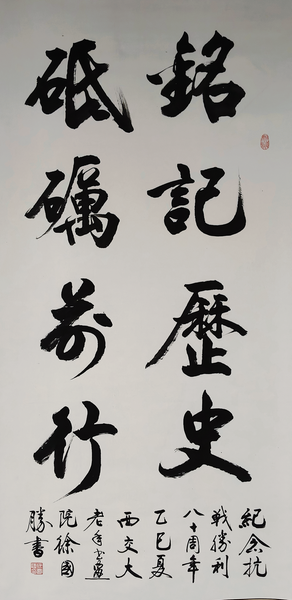 銘記歷史
砥礪前行
紀念抗
戰勝利
八十周年
乙巳夏
西交大
老年書畫
院徐國
勝書